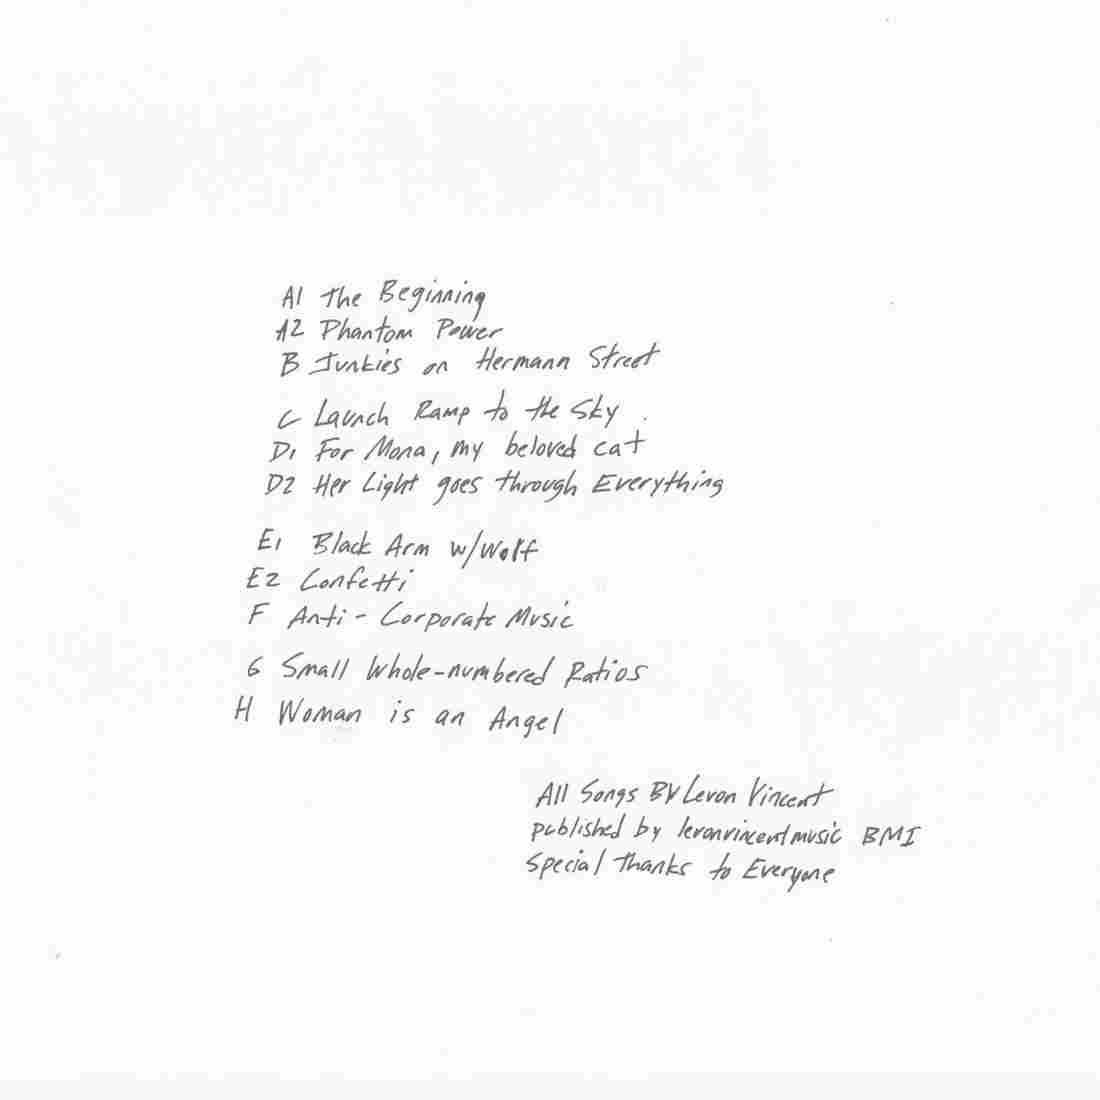 A1 The Beginning
A2 Phantom Power
B Junkies on Hermann Street
C Launch Ramp to the Sky
D1 For Mona, my beloved cat
D2 Her Light goes through Everything
E1 Black Arm w/Wolf
E2 Confetti
F Anti-Corporate Music
G Small Whole-numbered Ratios
H Woman is an Angel
All Songs BY Levon Vincent
published by levonvincentmusic BMI
Special Thanks to Everyone